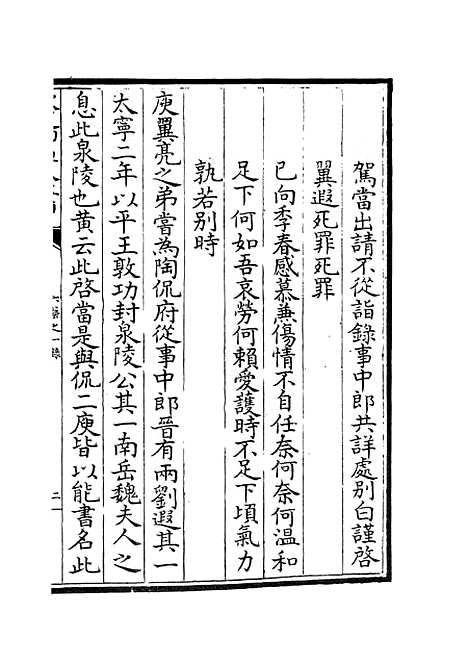 駕當出請不從詣錄事中郎共詳處別白謹啓
翼遐死罪死罪
已向季春感慕蒹傷情不自任奈何奈何温和
足下何如吾哀勞何賴愛護時不足下頃氣力
孰若别時
庾翼亮之弟嘗為陶侃府從事中郎晉有兩劉遐其一
太寧二年以平王敦功封泉陵公其一南岳魏夫人之
息此泉陵也黄云此啓當是與侃二庾皆以能書名此